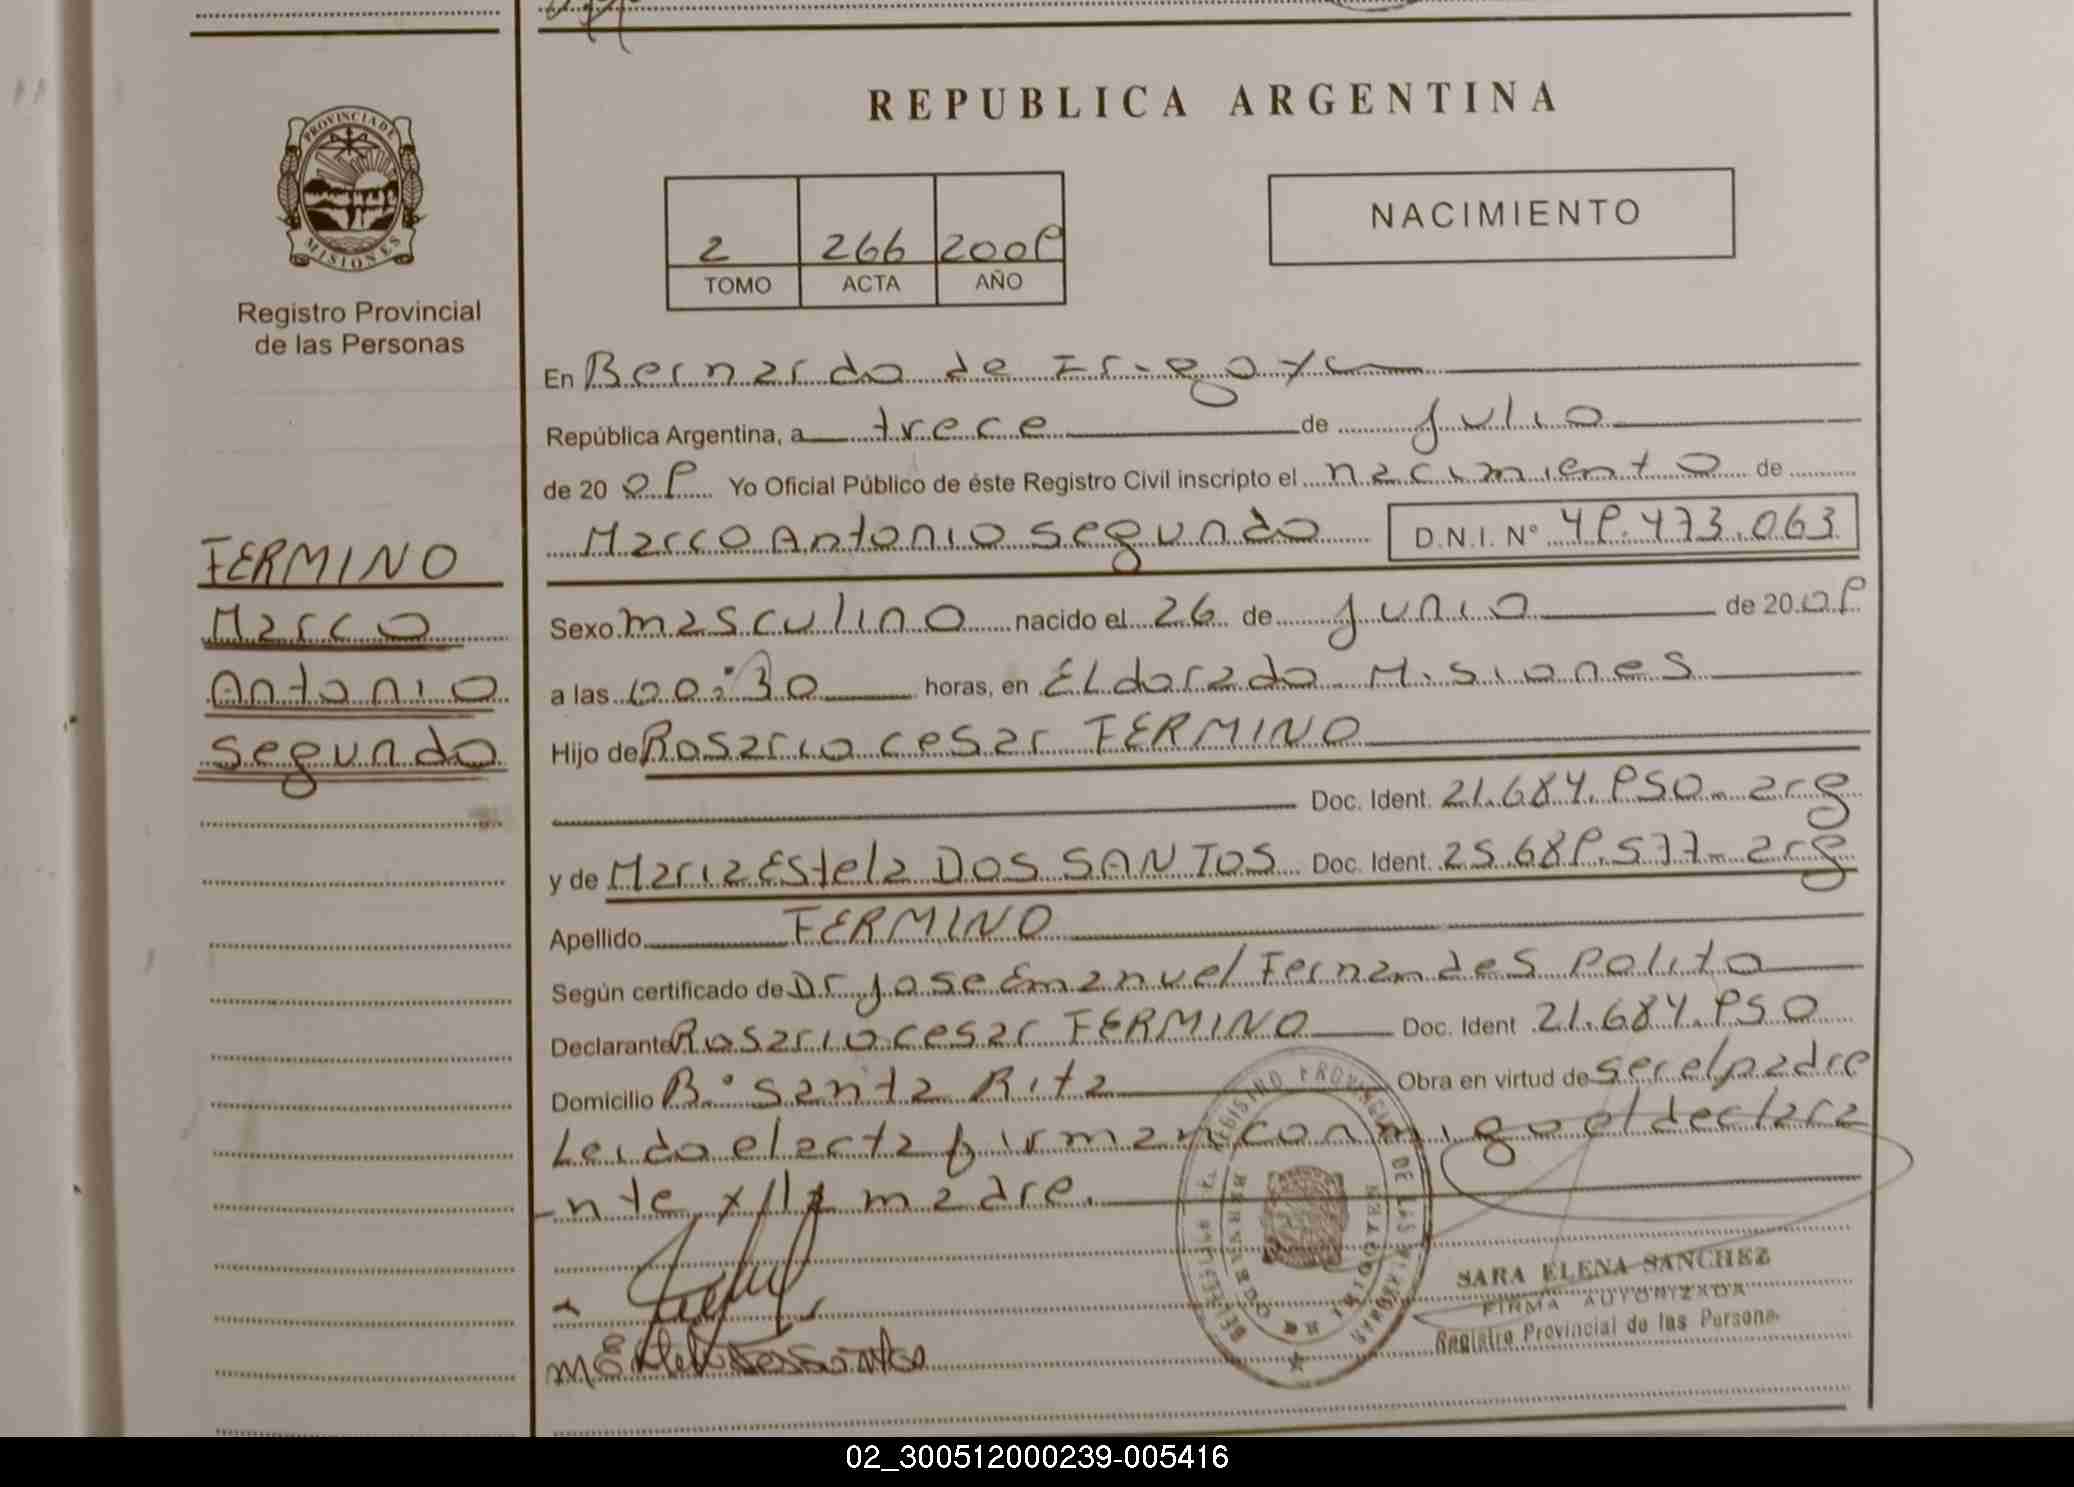 REPUBLICA ARGENTINA
PROVINCIA DE
MISIONES
Registro Provincial
de las Personas
2 266 2009
TOMO ACTA AÑO
NACIMIENTO
En Bernardo de Irigoyen
República Argentina, a trece de julio
de 20 09 Yo Oficial Público de éste Registro Civil inscripto el nacimiento de
Marco Antonio segundo D.N.I. N° 49.473.063
FERMINO
Marco
Antonio
segundo
Sexo masculino nacido el 26 de junio de 20 09
a las horas, en ELdorado Misiones
Hijo de Rosario cesar FERMINO
Doc. Ident. 21.684.950 - arg
y de Maria Estela DOS SANTOS Doc. Ident. 25.689.577 - arg
Apellido FERMINO
Según certificado de Dr jose Emanuel Fernandes Polito
Declarante Rosario cesar FERMINO Doc. Ident 21.684.950
Domicilio B° santa Rita Obra en virtud de ser el padre
Leido el acta firman conmigo el declara
-nte x/la madre.
REGISTRO PROVINCIAL DE LAS PERSONAS
SARA ELENA SANCHEZ
FIRMA AUTORIZADA
Registro Provincial de las Persona
02_300512000239-005416